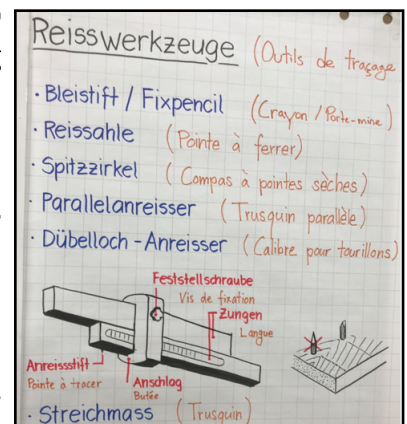 Reisswerkzeuge (Outils de traçage
· Bleistift / Fixpencil (Crayon / Porte-mine)
· Reissahle (Pointe à ferrer)
· Spitzzirkel (Compas à pointes sèches)
· Parallelanreisser (Trusquin parallèle)
· Dübelloch-Anreisser (Calibre pour tourillons)
Feststellschraube
Vis de fixation
Zungen
Langue
Anreissstift
Pointe à tracer
Anschlag
Butée
· Streichmass (Trusquin)